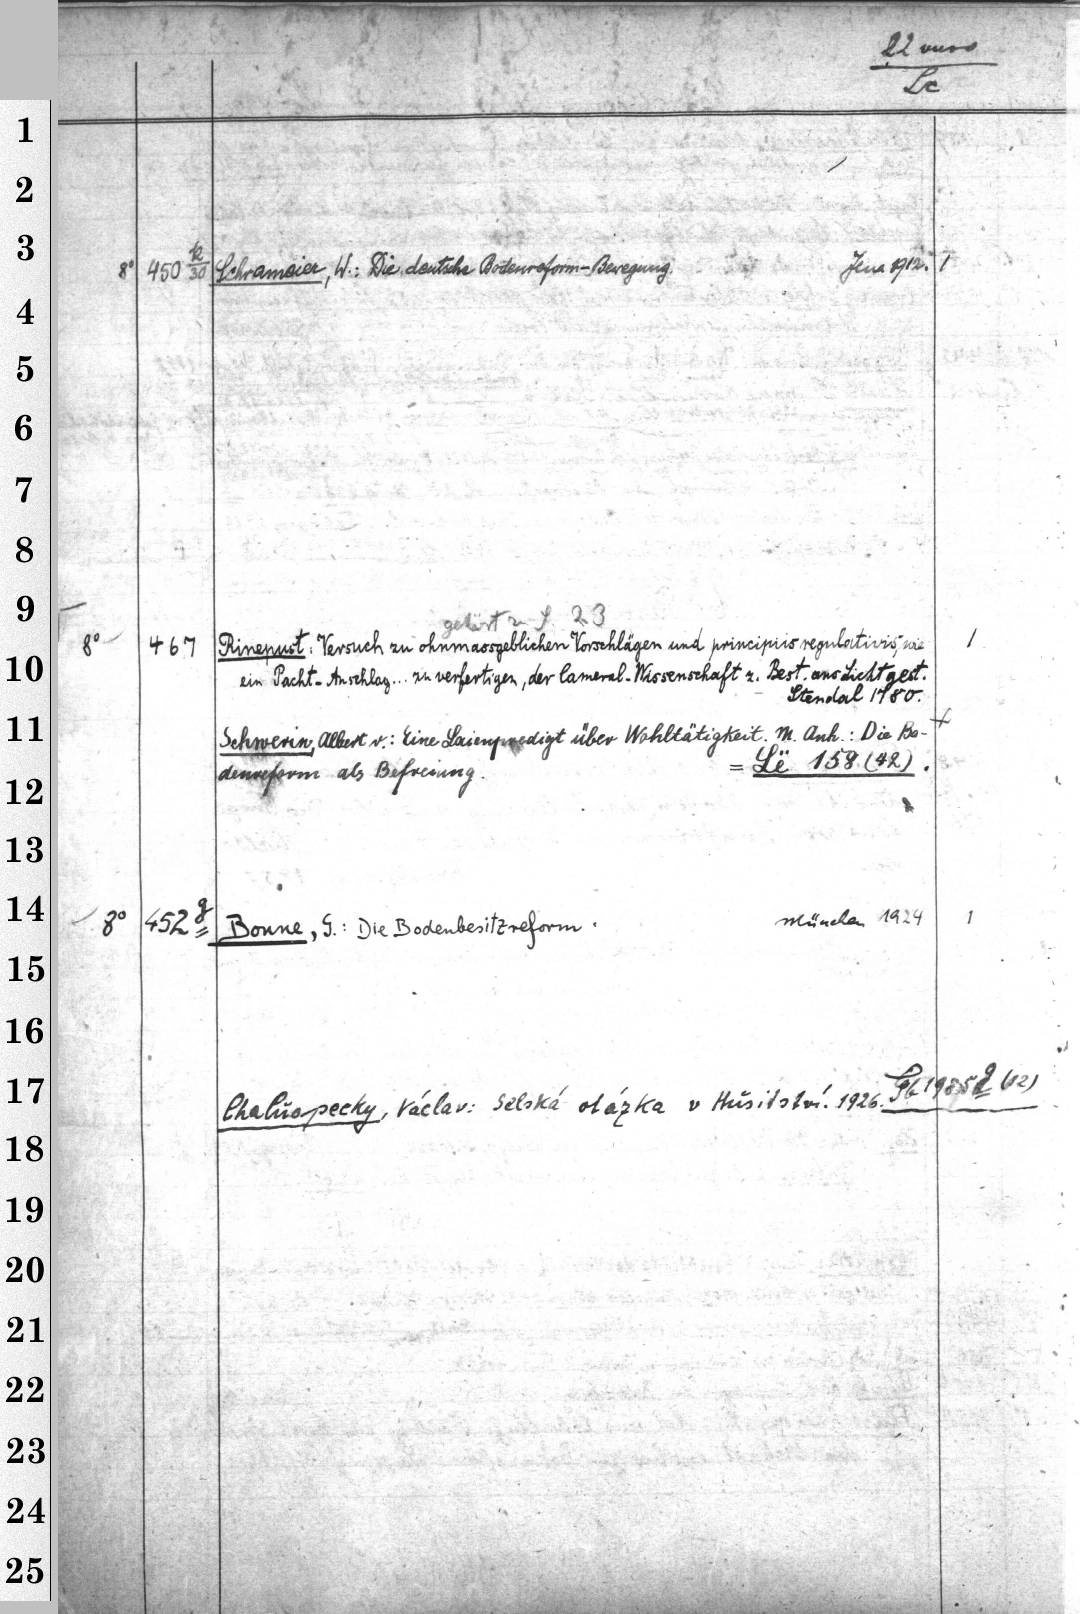 22
Lc
1
2
3
8° 450 k/30 Schrameier, W.: Die deutsche Bodenreform-Bewegung. Jena 1912. 1
4
5
6
7
8
9
gehört zu S. 23
8° 467 Rinepust: Versuch zu ohnmassgeblichen Vorschlägen und principiis regulativis, wie 1
10
ein Pacht-Anschlag... zu verfertigen, der Cameral-Wissenschaft z. Best. ans Licht gest.
Stendal 1780.
11
Schwerin, Albert v.: Eine Laienpredigt über Wohltätigkeit. M. Anh.: Die Bo-
denreform als Befreiung. = Lë 158 (42).
12
13
14
8° 452 g Bonne, G.: Die Bodenbesitzreform. München 1924 1
15
16
17
Chalúopecky, Václav: Selská otázka v Husitství. 1926. (12)
18
19
20
21
22
23
24
25